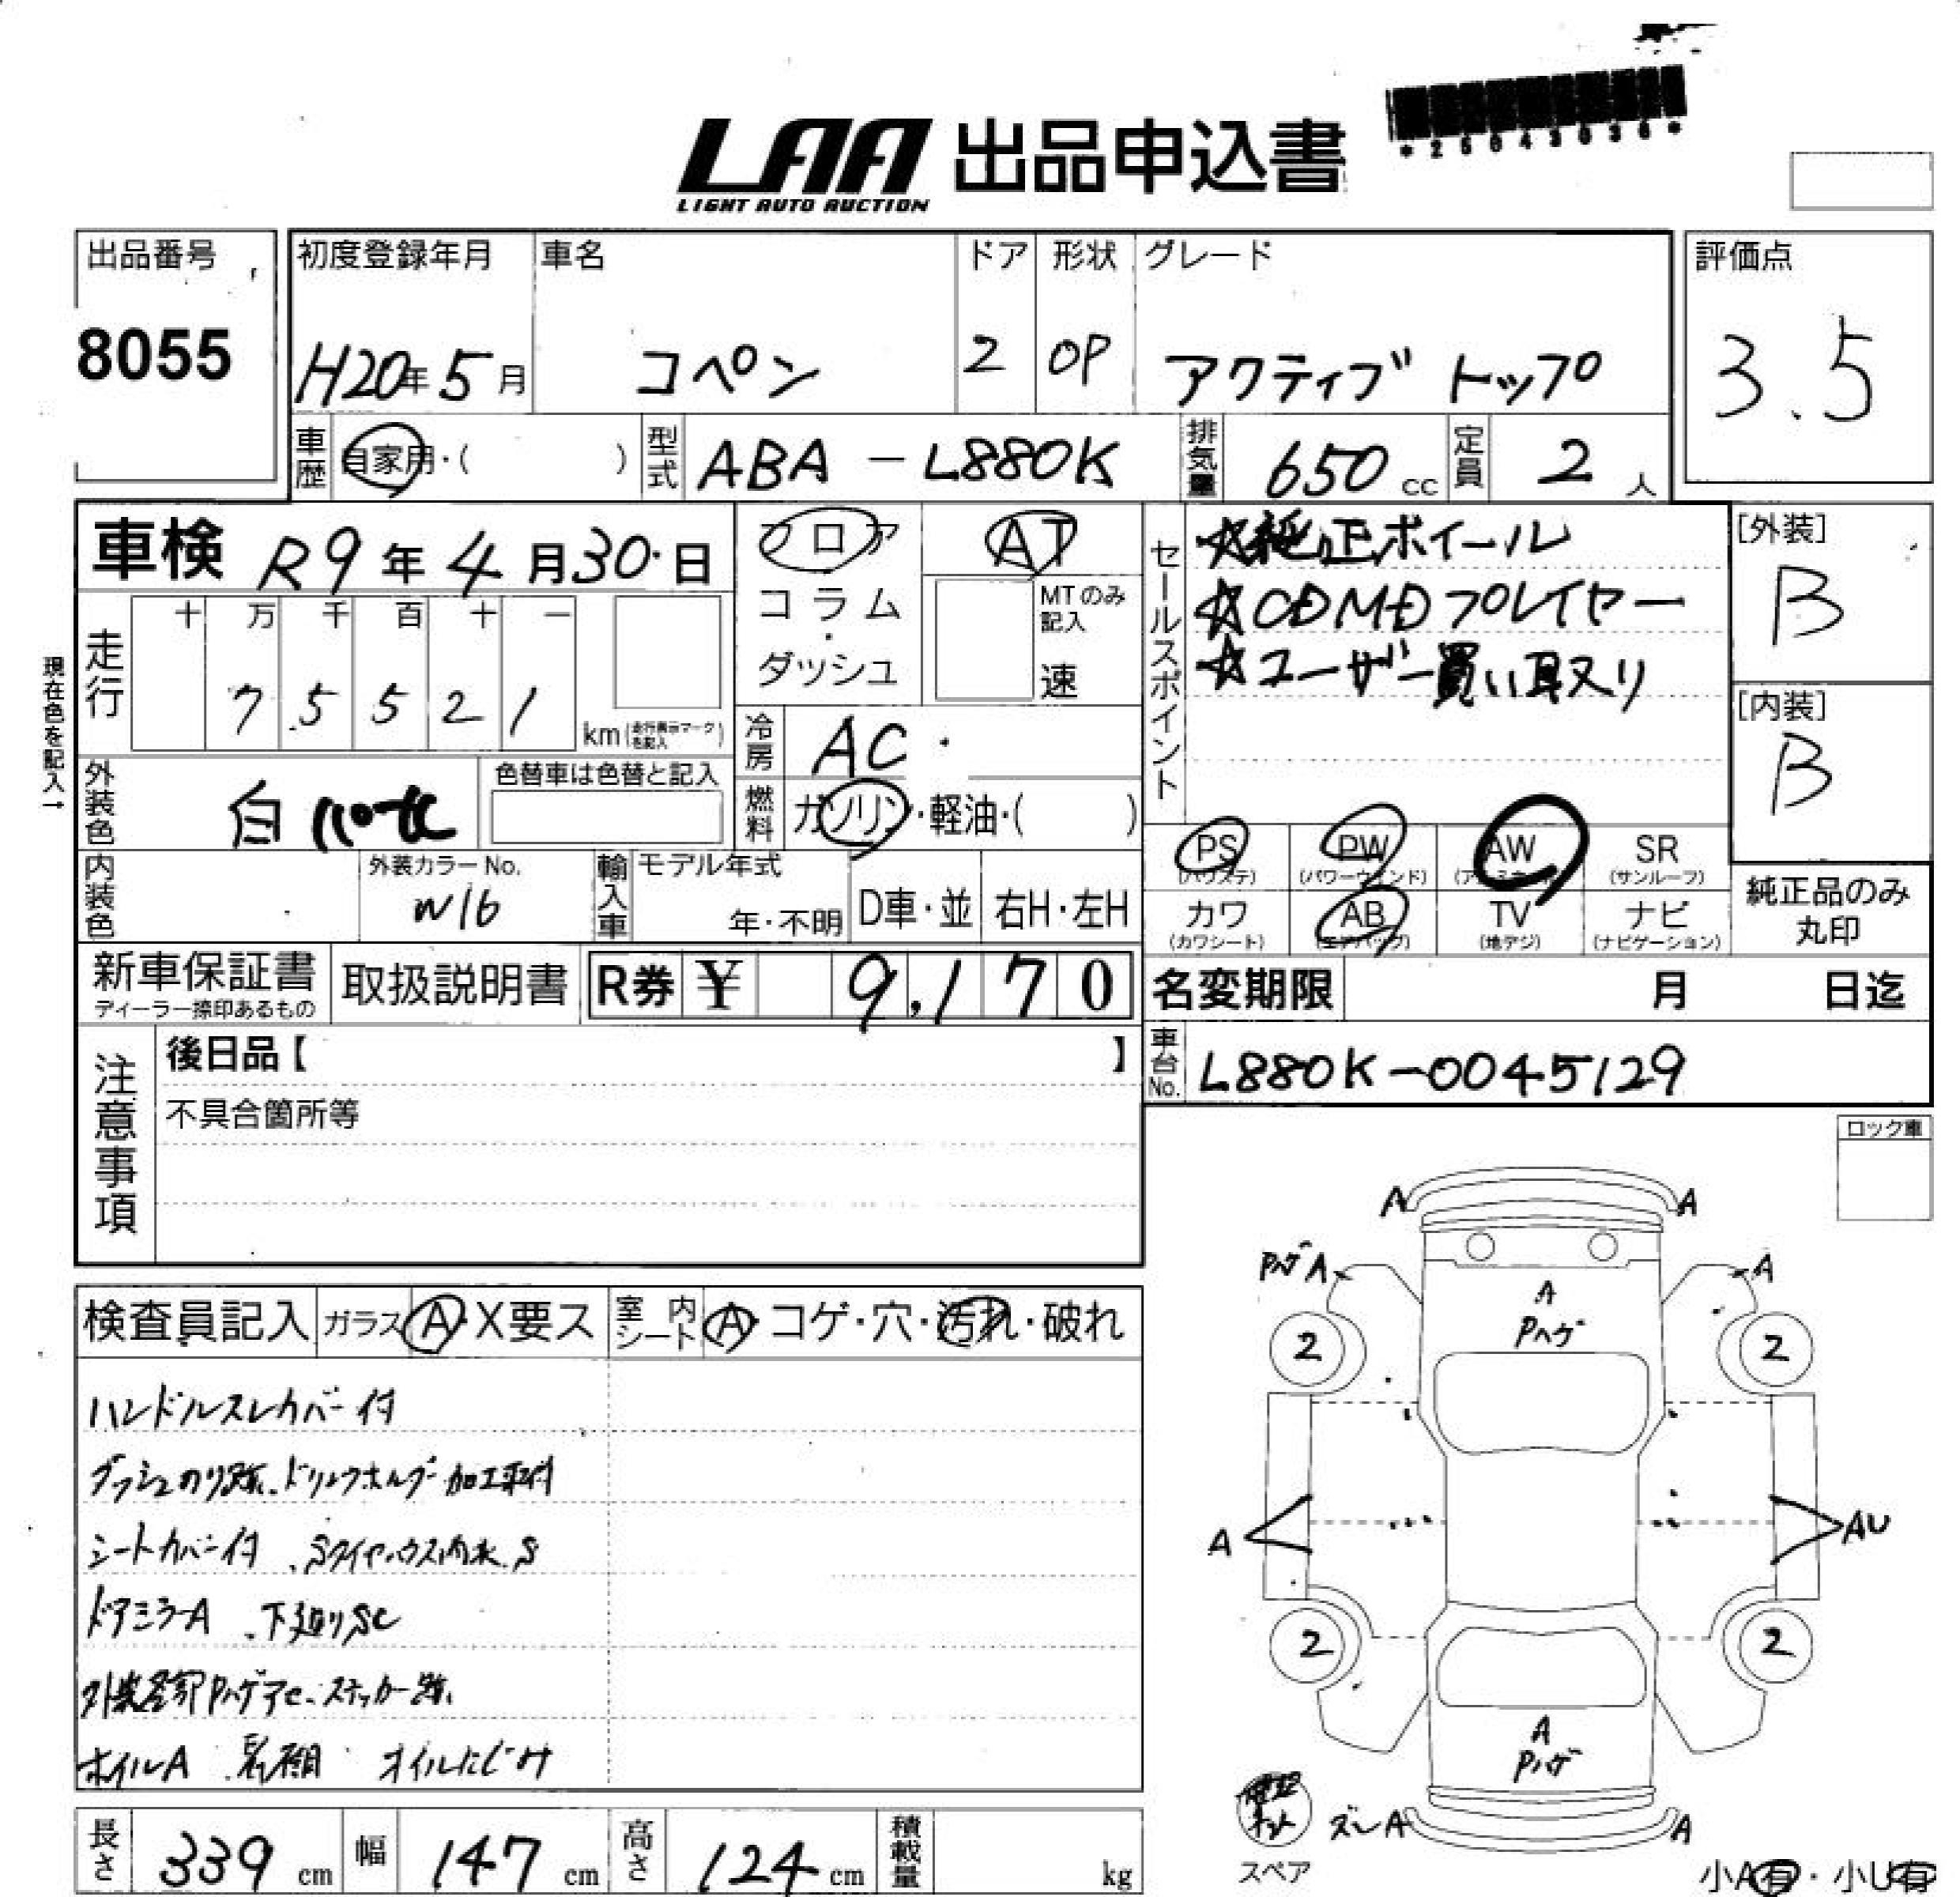 LAA 出品申込書
LIGHT AUTO AUCTION
*25043036*
出品番号
8055
初度登録年月
H20年 5月
車名
コペン
ドア
2
形状
OP
グレード
アクティブ トップ
評価点
3.5
車歴 自家用・( )
型式 ABA-L880K
排気量 650 cc
定員 2 人
車検 R9年 4月30日
フロア
コラム
・
ダッシュ
AT
MTのみ
記入
速
セールスポイント
☆純正ホイール
☆CDMDプレイヤー
☆ユーザー買い取り
[外装]
B
[内装]
B
現在色を記入→
走行
十 万 千 百 十 一
7 5 5 2 1
km(走行表示マークを記入)
冷房 AC
外装色 白パール
色替車は色替と記入
燃料 ガソリン・軽油・( )
PS
(パワステ)
PW
(パワーウインド)
AW
SR
(サンルーフ)
内装色
外装カラーNo.
W16
輸入車
モデル年式
年・不明
D車・並
右H・左H
カワ
(カワシート)
AB
(エアバッグ)
TV
(地デジ)
ナビ
(ナビゲーション)
純正品のみ
丸印
新車保証書
ディーラー捺印あるもの
取扱説明書
R券 ¥ 9,170
名変期限 月 日迄
注意事項
後日品【 】
不具合箇所等
車台No. L880K-0045129
ロック車
A A
PハゲA A
A
Pハゲ
2 2
A AU
2 2
A
Pハゲ
ズレA A
スペア
小A有・小U有
検査員記入
ガラス A・X要ス
室内シート A・コゲ・穴・汚れ・破れ
ハンドルスレカバー付
ダッシュのり跡、ドリンクホルダー加工取付
シートカバー付 、Sタイヤハウス内末、S
ドアミラーA 、下廻りSC
外装全部Pハゲ、ステッカー跡、
ホイルA オイルにじみ
長さ 339 cm
幅 147 cm
高さ 124 cm
積載量 kg